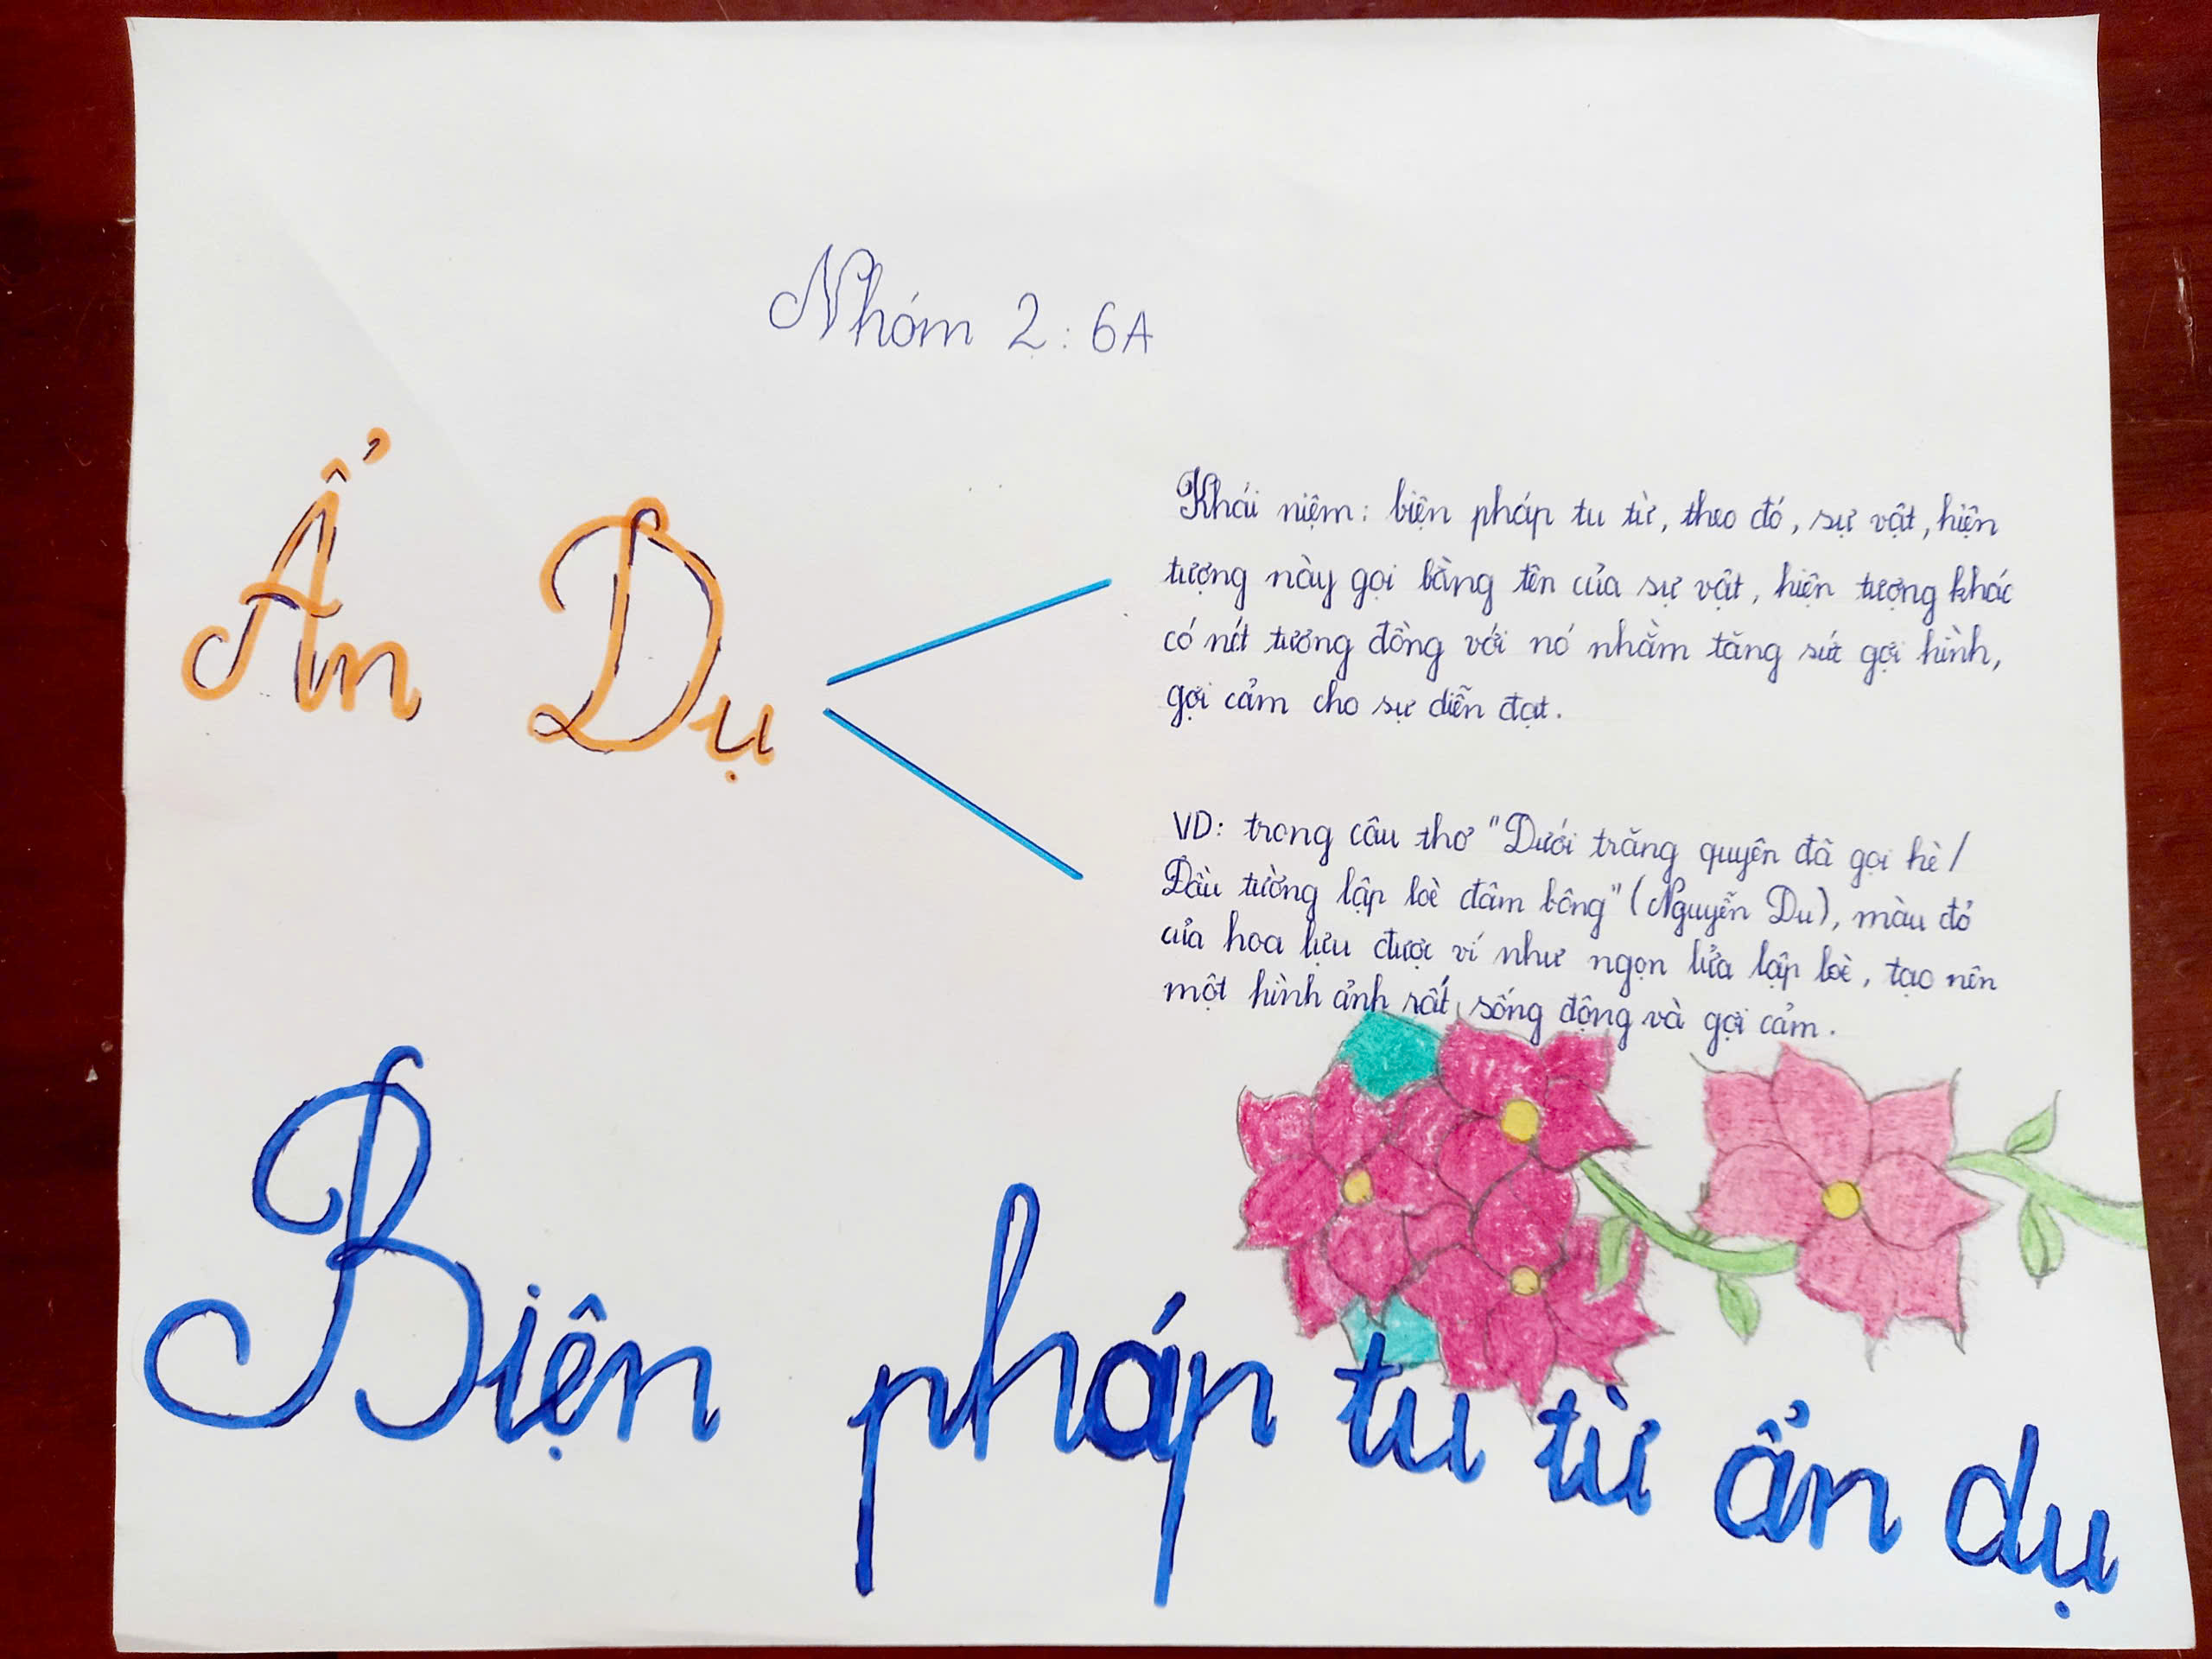 Nhóm 2: 6A
Ẩn Dụ
Khái niệm: biện pháp tu từ, theo đó, sự vật, hiện
tượng này gọi bằng tên của sự vật, hiện tượng khác
có nét tương đồng với nó nhằm tăng sức gợi hình,
gợi cảm cho sự diễn đạt.
VD: trong câu thơ "Dưới trăng quyên đã gọi hè /
Đầu tường lập loè đâm bông" (Nguyễn Du), màu đỏ
của hoa lựu được ví như ngọn lửa lập loè, tạo nên
một hình ảnh rất sống động và gợi cảm.
Biện pháp tu từ ẩn dụ